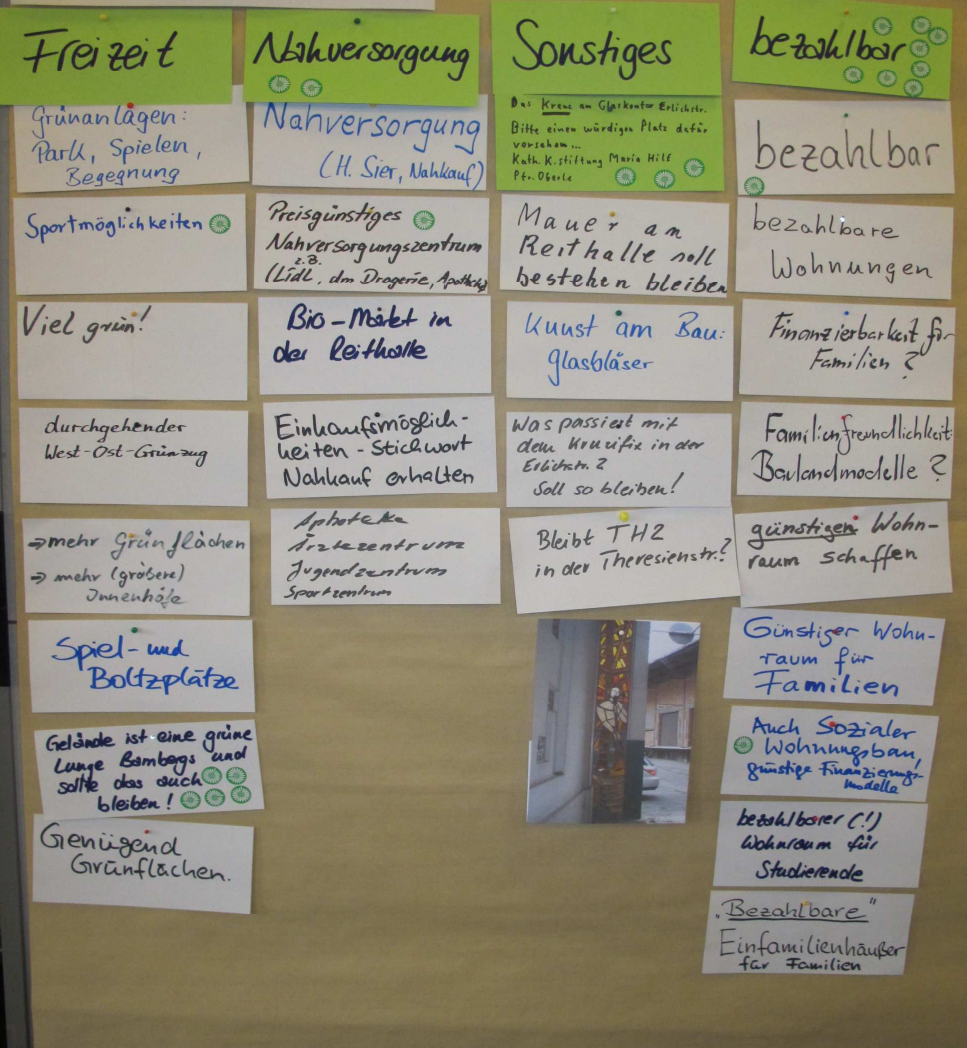 Freizeit
Grünanlagen:
Park, Spielen,
Begegnung
Sportmöglichkeiten
Viel grün!
durchgehender
West-Ost-Grünzug
⇒ mehr Grünflächen
⇒ mehr (größere)
Innenhöfe
Spiel- und
Boltzplätze
Gelände ist eine grüne
Lunge Bambergs und
sollte das auch
bleiben!
Genügend
Grünflächen.
Nahversorgung
Nahversorgung
(H. Sier, Nahkauf)
Preisgünstiges
Nahversorgungszentrum
z.B.
(Lidl, dm Drogerie, Apotheke)
Bio-Markt in
der Reithalle
Einkaufsmöglich-
keiten - Stichwort
Nahkauf erhalten
Aphoteke
Ärztezentrum
Jugendzentrum
Sportzentrum
Sonstiges
Das Kreuz am Glaskontor Erlichstr.
Bitte einen würdigen Platz dafür
vorsehen...
Kath. K.stiftung Maria Hilf
Pfr. Oberle
Mauer an
Reithalle soll
bestehen bleiben
Kunst am Bau:
Glasbläser
Was passiert mit
dem Kruzifix in der
Erlichstr. ?
Soll so bleiben!
Bleibt TH2
in der Theresienstr.?
bezahlbar
bezahlbar
bezahlbare
Wohnungen
Finanzierbarkeit für
Familien ?
Familienfreundlichkeit:
Baulandmodelle ?
günstigen Wohn-
raum schaffen
Günstiger Wohn-
raum für
Familien
Auch Sozialer
Wohnungsbau,
günstige Finanzierungs-
modelle
bezahlbarer (!)
Wohnraum für
Studierende
"Bezahlbare"
Einfamilienhäußer
für Familien